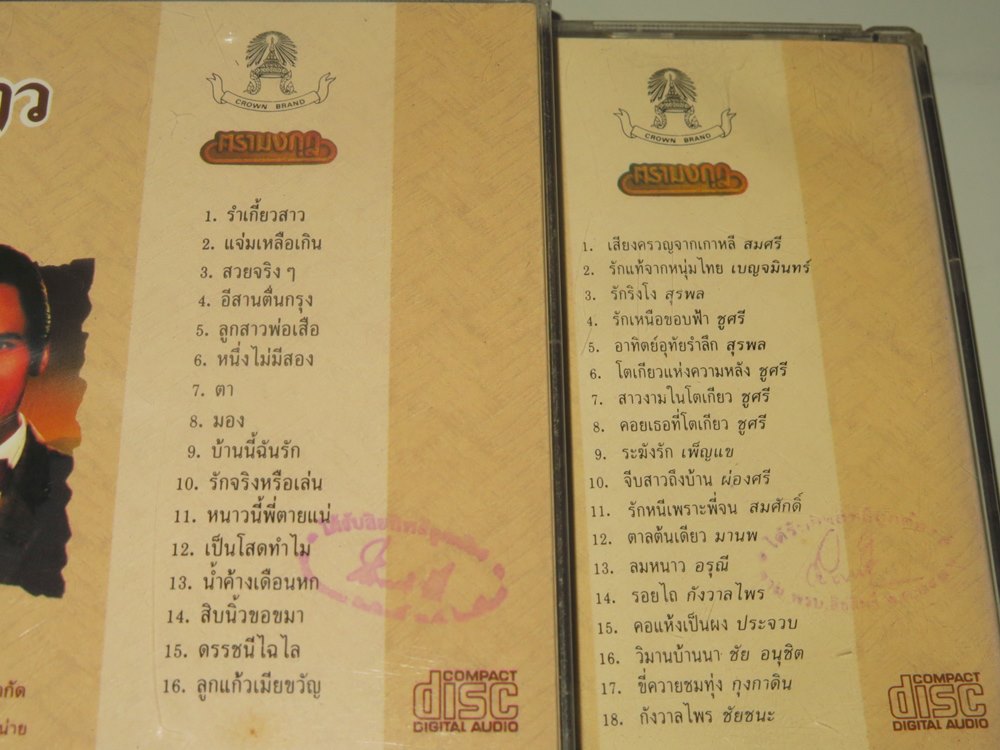 CROWN BRAND
ตรามงกุฎ
1. รำเกี้ยวสาว
2. แจ่มเหลือเกิน
3. สวยจริง ๆ
4. อีสานตื่นกรุง
5. ลูกสาวพ่อเสือ
6. หนึ่งไม่มีสอง
7. ตา
8. มอง
9. บ้านนี้ฉันรัก
10. รักจริงหรือเล่น
11. หนาวนี้พี่ตายแน่
12. เป็นโสดทำไม
13. น้ำค้างเดือนหก
14. สิบนิ้วขอขมา
15. ดรรชนีไฉไล
16. ลูกแก้วเมียขวัญ
COMPACT
disc
DIGITAL AUDIO
CROWN BRAND
ตรามงกุฎ
1. เสียงครวญจากเกาหลี สมศรี
2. รักแท้จากหนุ่มไทย เบญจมินทร์
3. รักริงโง สุรพล
4. รักเหนือขอบฟ้า ชูศรี
5. อาทิตย์อุทัยรำลึก สุรพล
6. โตเกียวแห่งความหลัง ชูศรี
7. สาวงามในโตเกียว ชูศรี
8. คอยเธอที่โตเกียว ชูศรี
9. ระฆังรัก เพ็ญแข
10. จีบสาวถึงบ้าน ผ่องศรี
11. รักหนีเพราะพี่จน สมศักดิ์
12. ตาลต้นเดียว มานพ
13. ลมหนาว อรุณี
14. รอยไถ กังวาลไพร
15. คอแห้งเป็นผง ประจวบ
16. วิมานบ้านนา ชัย อนุชิต
17. ขี่ควายชมทุ่ง กุงกาดิน
18. กังวาลไพร ชัยชนะ
COMPACT
disc
DIGITAL AUDIO